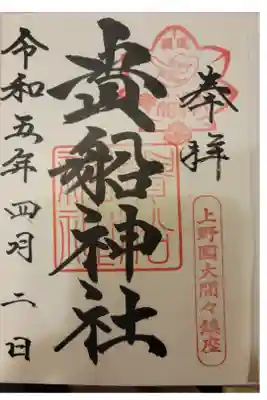 奉拝
上野国大間々鎮座
貴船神社
令和五年四月二日